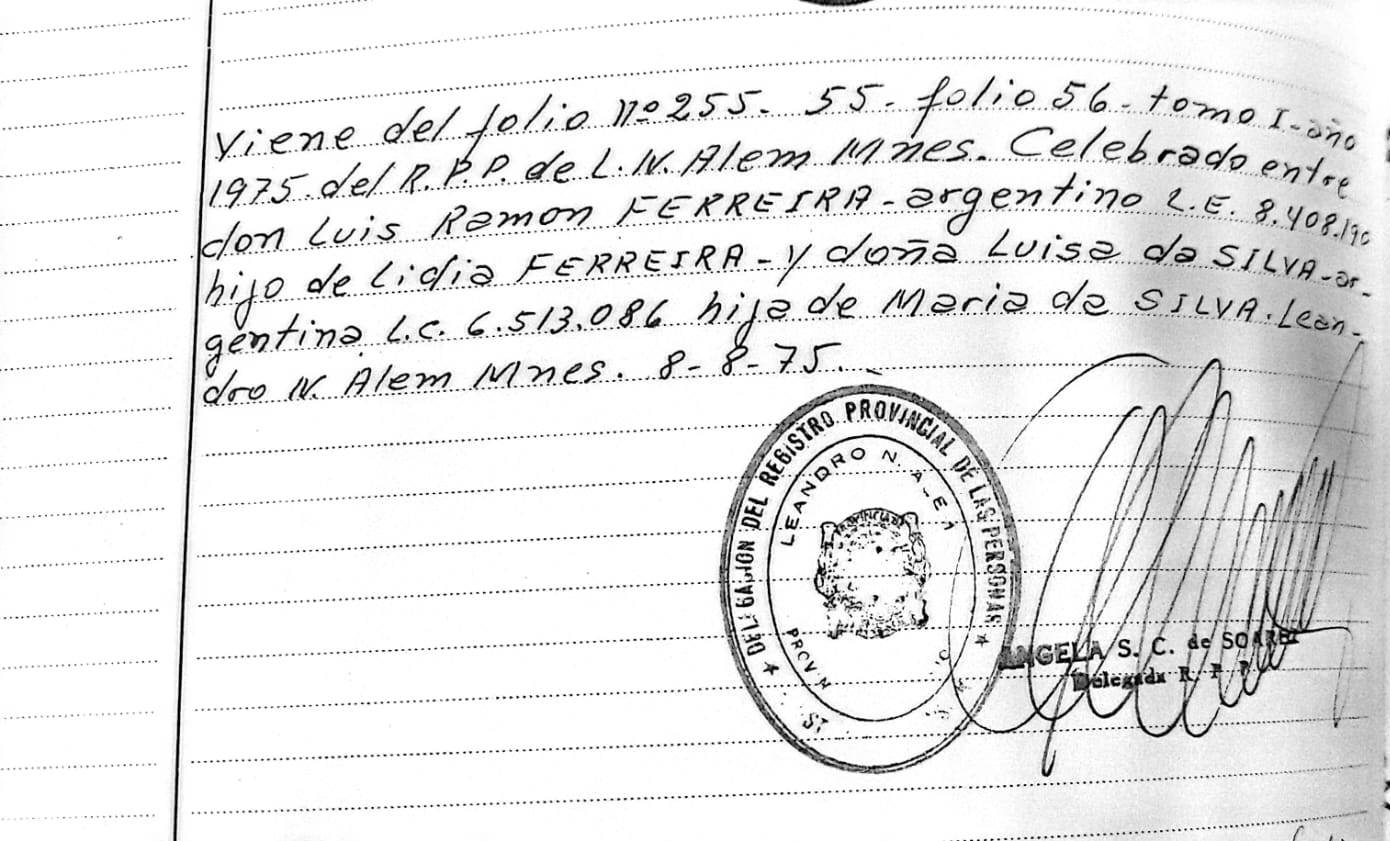 Viene del folio nº 255. 55. folio 56. tomo I. año
1975 del R.P.P. de L.N. Alem Mnes. Celebrado entre
don Luis Ramon FERREIRA - argentino L.E. 8.408.190
hijo de Lidia FERREIRA - y doña Luisa da SILVA - ar-
gentina L.C. 6.513.086 hija de Maria da SILVA. Lean-
dro N. Alem Mnes. 8-8-75.
★ DELEGACION DEL REGISTRO PROVINCIAL DE LAS PERSONAS ★
LEANDRO N. ALEM
PROVINCIA DE
ANGELA S. C. de SOAREZ
Delegada R. P. P.